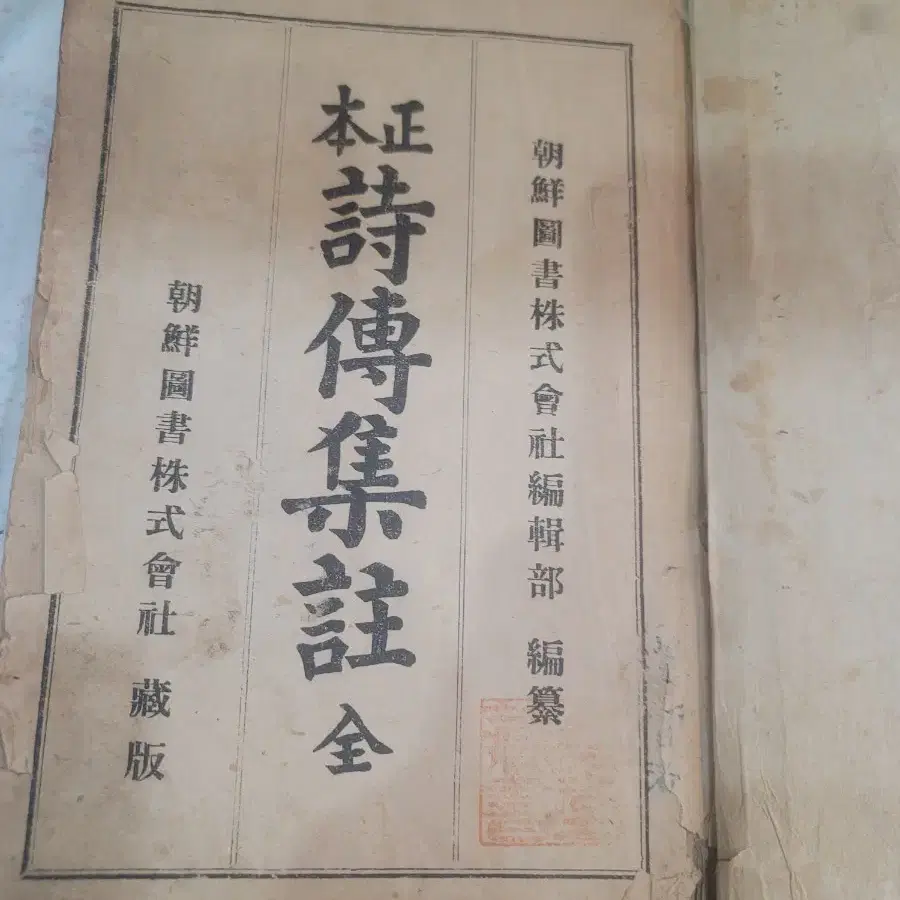 朝鮮圖書株式會社編輯部 編纂
正本
詩傳集註 全
朝鮮圖書株式會社 藏版